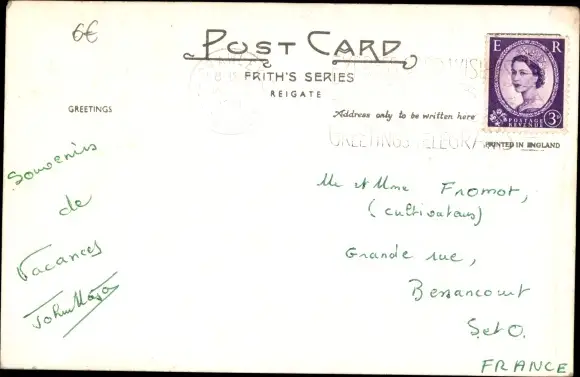 6€
POST CARD
FRITH'S SERIES
REIGATE
GREETINGS
Address only to be written here
E R
POSTAGE
REVENUE
3D
GREETINGS TELEGRAMS
PRINTED IN ENGLAND
Souvenirs
de
Vacances
Mr et Mme Fromot,
(cultivateurs)
Grande rue,
Bessancourt
S et O.
FRANCE